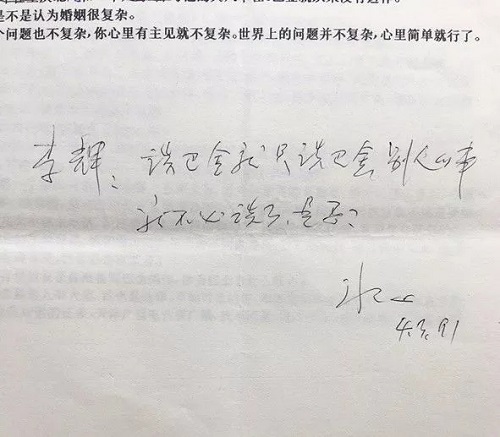 是不是认为婚姻很复杂。
个问题也不复杂,你心里有主见就不复杂。世界上的问题并不复杂,心里简单就行了。
李辉:谈巴金我只谈巴金,别人的事
我不必谈了,是否?
冰心
4.3.91